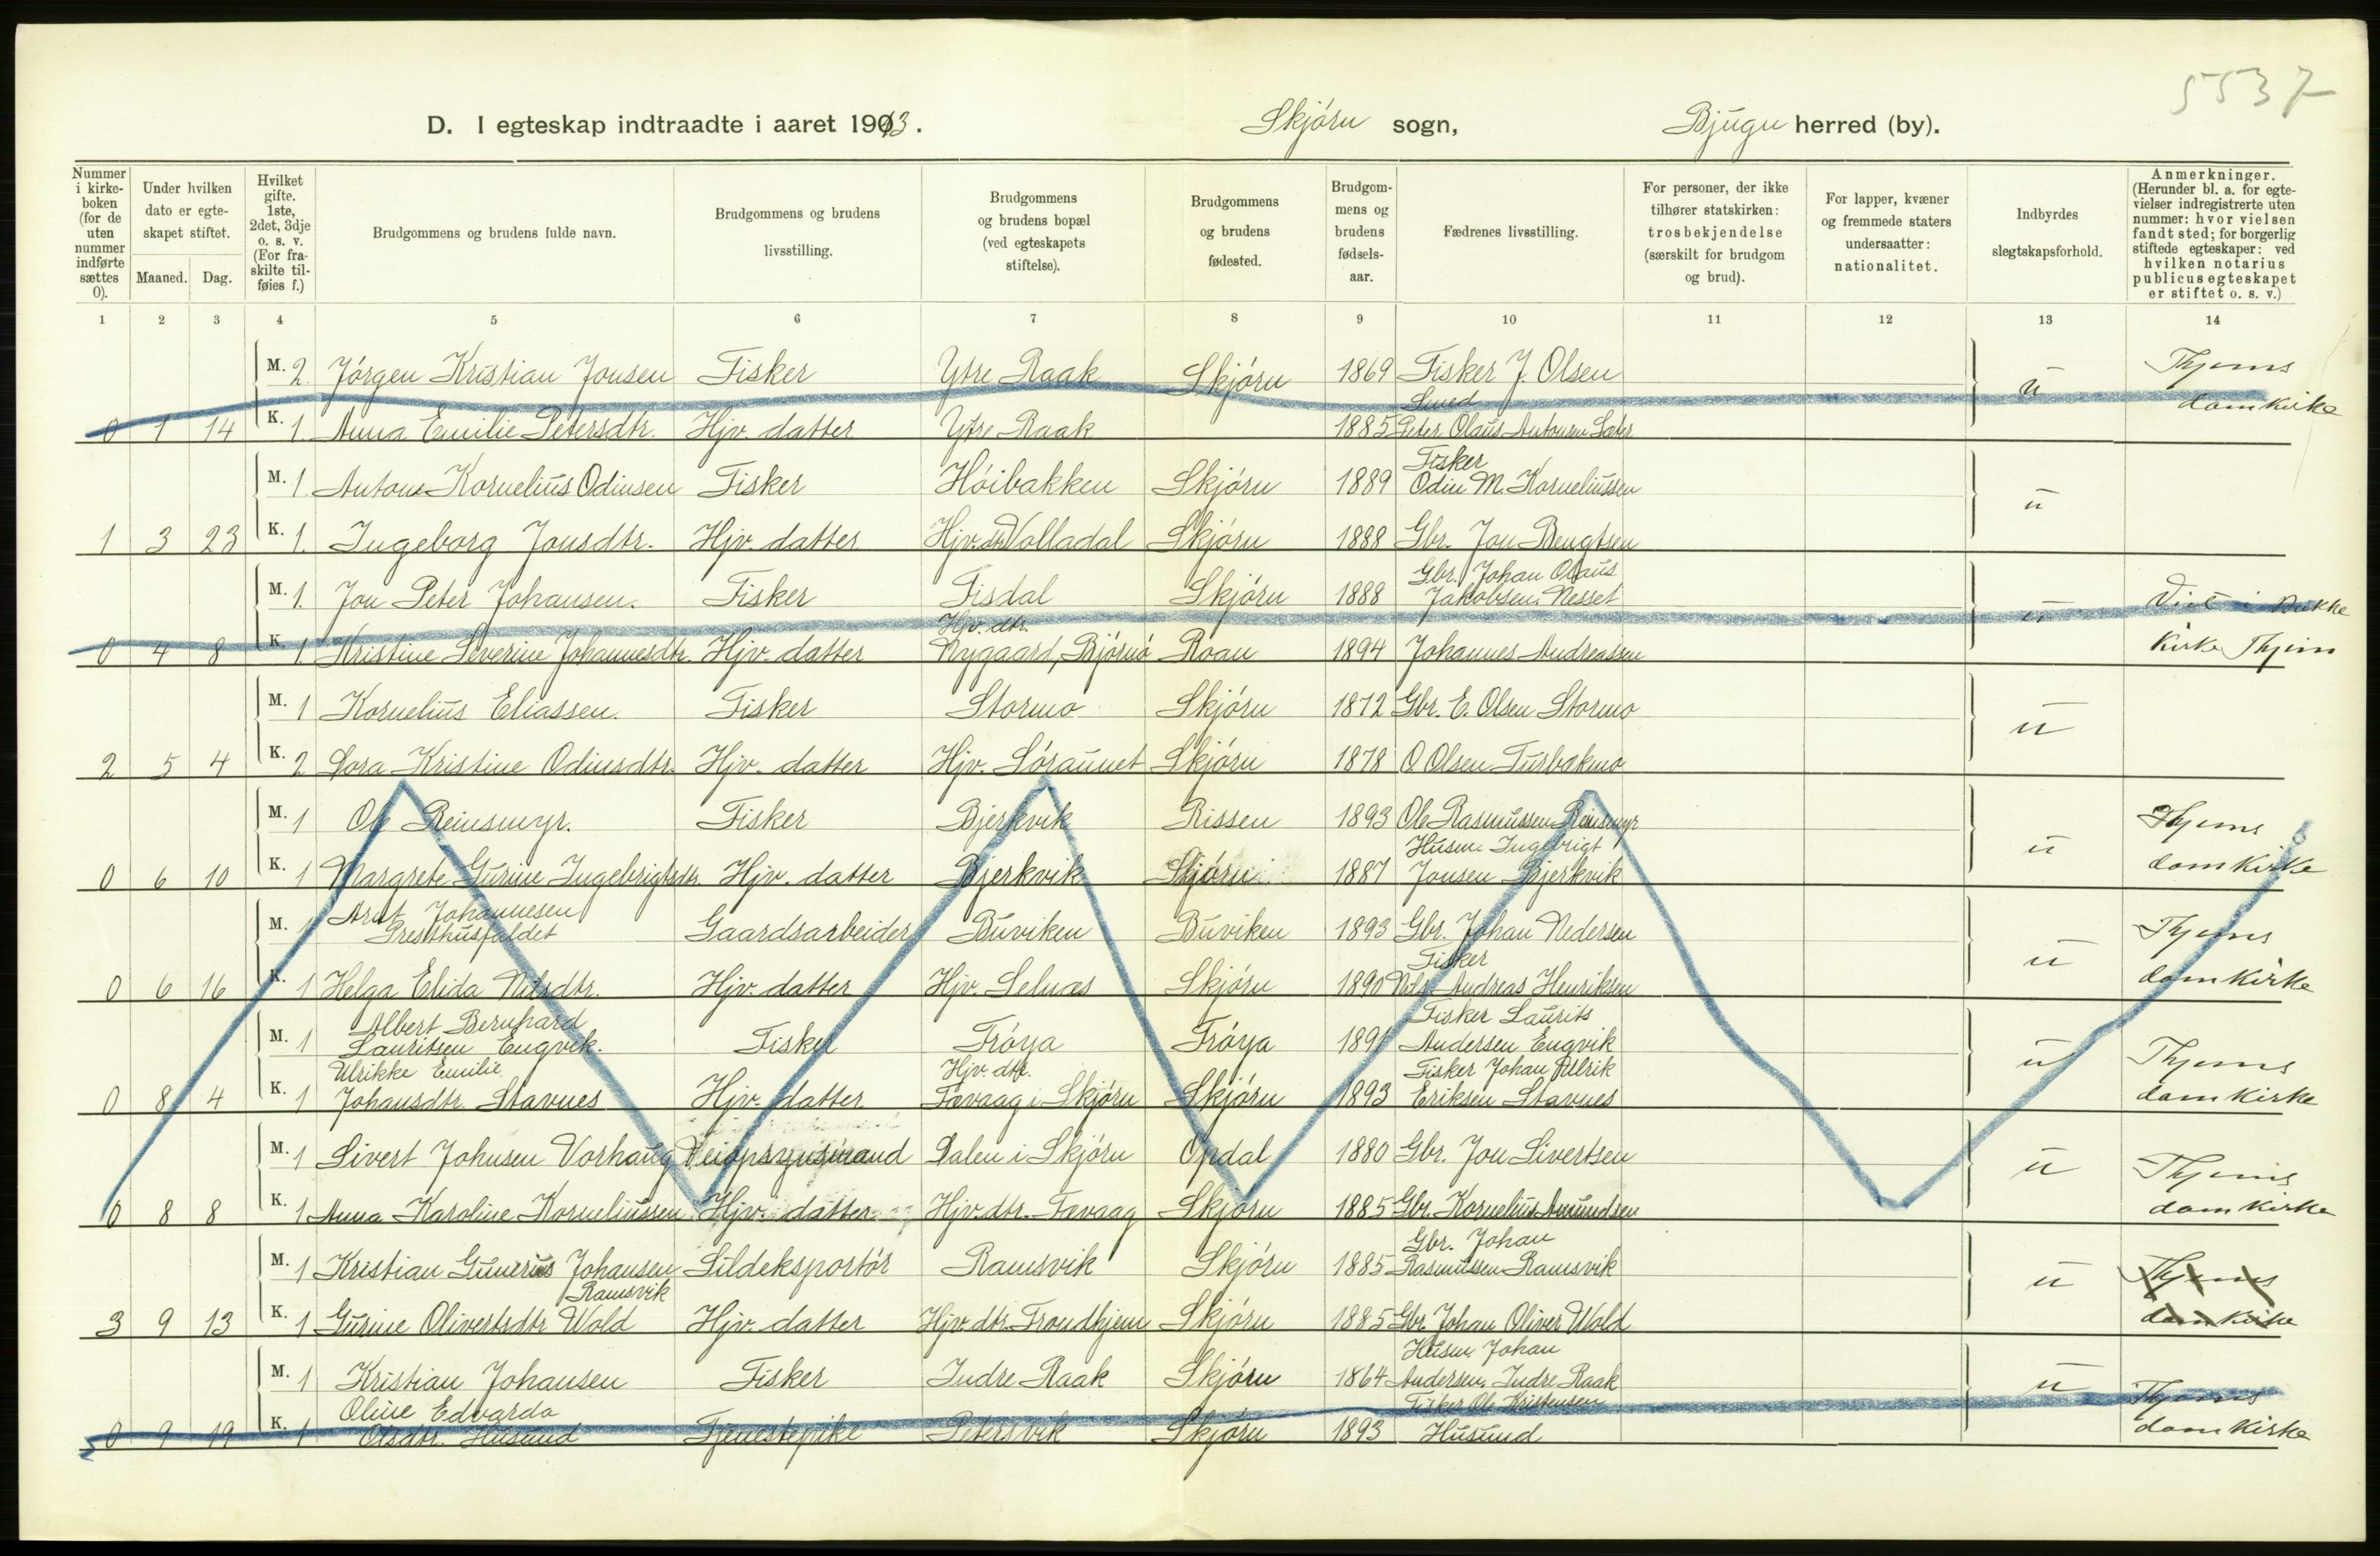 5537
D. I egteskap indtraadte i aaret 1913. Skjørn sogn, Bjugn herred (by).
Nummer i kirke-boken (for de uten nummer indførte sættes 0).
Under hvilken dato er egte-skapet stiftet.
Maaned. Dag.
Hvilket gifte. 1ste, 2det, 3dje o. s. v. (For fra-skilte til-føies f.)
Brudgommens og brudens fulde navn.
Brudgommens og brudens livsstilling.
Brudgommens og brudens bopæl (ved egteskapets stiftelse).
Brudgommens og brudens fødested.
Brudgom-mens og brudens fødsels-aar.
Fædrenes livsstilling.
For personer, der ikke tilhører statskirken: trosbekjendelse (særskilt for brudgom og brud).
For lapper, kvæner og fremmede staters undersaatter: nationalitet.
Indbyrdes slegtskapsforhold.
Anmerkninger. (Herunder bl. a. for egte-vielser indregistrerte uten nummer: hvor vielsen fandt sted; for borgerlig stiftede egteskaper: ved hvilken notarius publicus egteskapet er stiftet o. s. v.)
1 2 3 4 5 6 7 8 9 10 11 12 13 14
M. 2. Jørgen Kristian Jonsen Fisker Ytre Raak Skjørn 1869 Fisker J. Olsen u Thjems
Smed
0 1 14 K. 1. Anna Emilie Petersdtr. Hjv. datter Ytre Raak 1885 Peter Olaus Antonsen domkirke
Fisker
M. 1. Anton Kornelius Odinsen Fisker Høibakken Skjørn 1889 Odin M. Korneliussen u
1 3 23 K. 1. Ingeborg Jonsdtr. Hjv. datter Hjv. dtr. Valladal Skjørn 1888 Gbr. Jon Bengtsen
Gbr. Johan Olaus
M. 1. Jon Peter Johansen. Fisker Tisdal Skjørn 1888 Jakobsen Nesset u Viet i Bakke
Hjv. dtr.
0 4 8 K. 1. Kristine Severine Johannesdtr. Hjv. datter Nygaard, Bjørnø Roan 1894 Johannes Andreassen kirke Thjem
M. 1 Kornelius Eliassen. Fisker Stormo Skjørn 1872 Gbr. E. Olsen Stormo u
2 5 4 K. 2 Dora Kristine Odinsdtr. Hjv. datter Hjv. Søraunet Skjørn 1878 O Olsen Turbakmo
M. 1 Ole Reinsmyr. Fisker Bjerkvik Rissen 1893 Ole Rasmussen Reinsmyr u Thjems
Husm. Ingebrigt
0 6 10 K. 1 Margrete Gurine Ingebrigtsdtr. Hjv. datter Bjerkvik Skjørn 1887 Jonsen Bjerkvik domkirke
Arnt Johannesen
M. 1 Presthusfaldet Gaardsarbeider Buviken Buviken 1893 Gbr. Johan Nedersen u Thjems
Fisker
0 6 16 K. 1 Helga Elida Nilsdtr. Hjv. datter Hjv. Selnæs Skjørn 1890 Nils Andreas Henriksen domkirke
Albert Bernhard Fisker Laurits
M. 1 Lauritsen Engvik. Fisker Frøya Frøya 1891 Andersen Engvik u Thjems
Ulrikke Emilie Hjv. dtr. Fisker Johan Ulrik
0 8 4 K. 1 Johansdtr. Stavnes Hjv. datter Tævaag i Skjørn Skjørn 1893 Eriksen Stavnes domkirke
M. 1 Sivert Johnsen Vorhaug Veiopsynsmand Dalen i Skjørn Opdal 1880 Gbr. Jon Sivertsen u Thjems
0 8 8 K. 1 Anna Karoline Korneliussen Hjv. datter Hjv. dtr. Tævaag Skjørn 1885 Gbr. Kornelius Amundsen domkirke
Gbr. Johan
M. 1 Kristian Gunerius Johansen Sildeksportør Ramsvik Skjørn 1885 Rasmussen Ramsvik u Thjems
Ramsvik
3 9 13 K. 1 Gurine Olivertsdtr Wold Hjv. datter Hjv. dtr. Trondhjem Skjørn 1885 Gbr. Johan Oliver Wold domkirke
Husm. Johan
M. 1 Kristian Johansen Fisker Indre Raak Skjørn 1864 Andersen Indre Raak u Thjems
Oline Edvarda Fisker Ole Kristensen
0 9 19 K. 1 Olsdtr. Husund Tjenestepike Petersvik Skjørn 1893 Husund domkirke